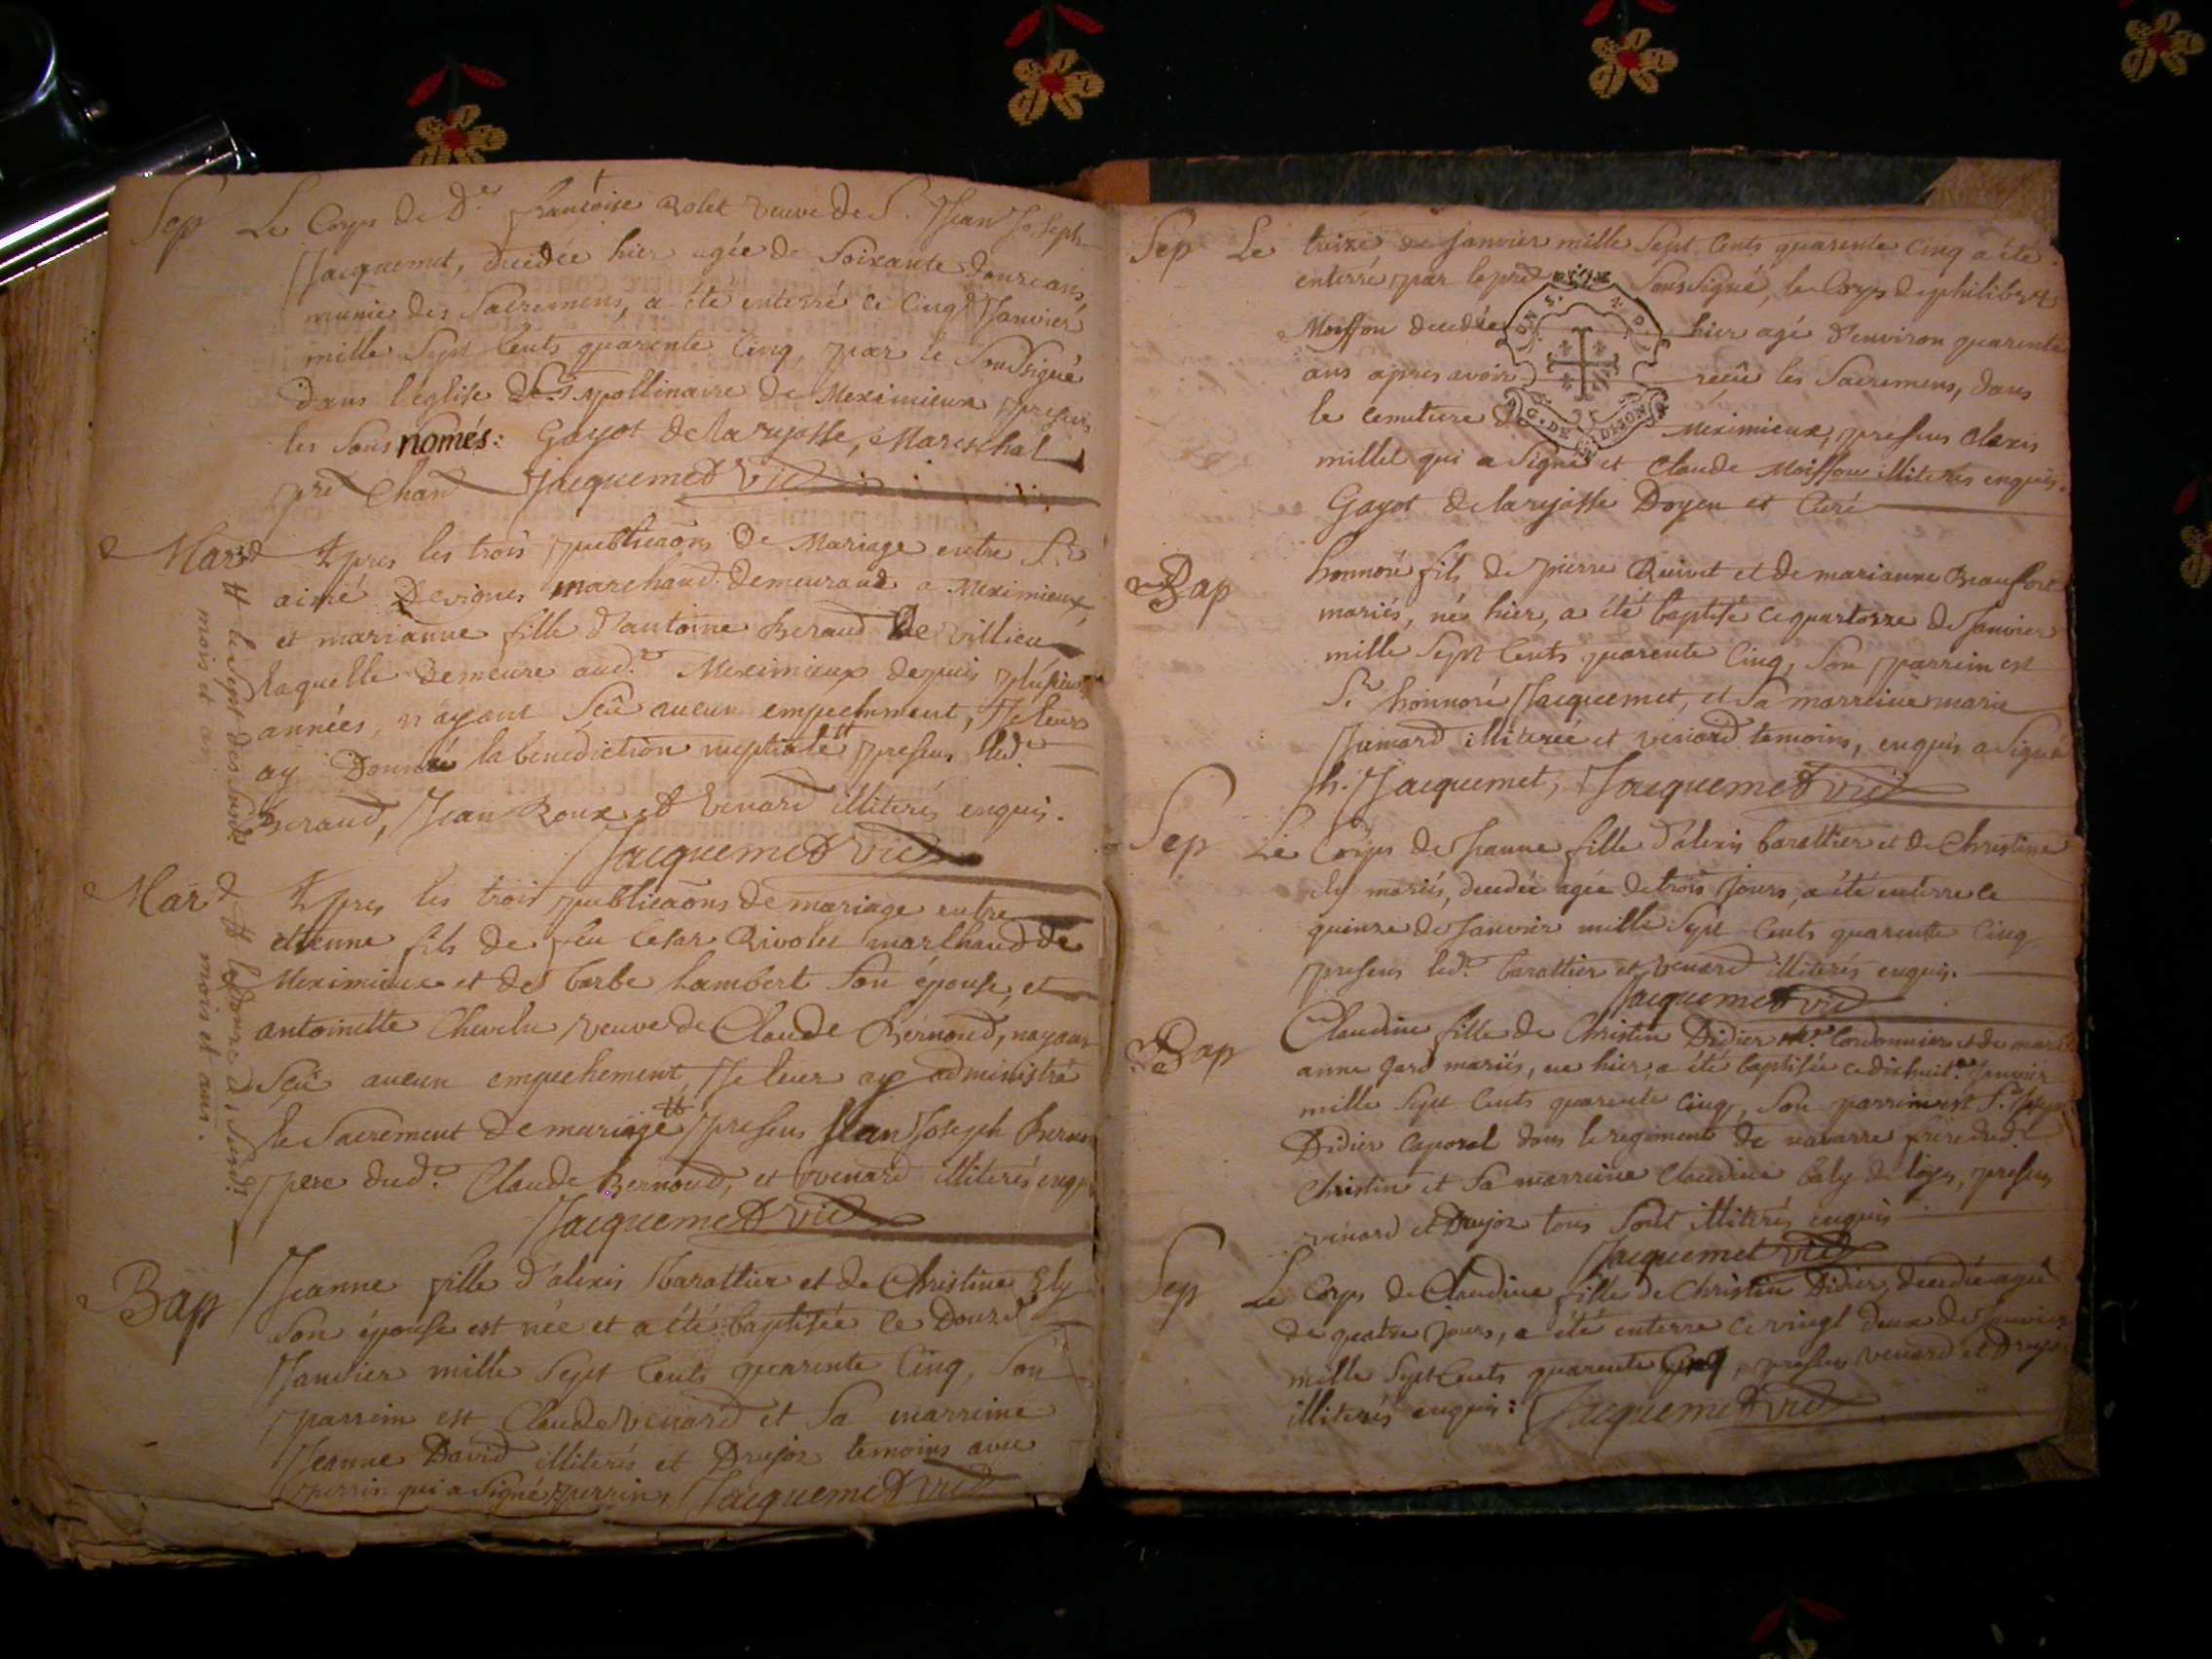 Sep Le Corps de De. françoise Rolet veuve de S. Jean Joseph
Jacquemet, decedée hier agée de Soixante douze ans,
munie des Sacremens, a été enterré ce Cinq Janvier
mille Sept Cents quarente Cinq, par le Soussigné
dans l'église de St apollinaire de Meximieux presens
les Sous només: Gayot de la rejasse, Mareschal
pre Chan Jacquemet vic
Mar Apres les trois publicaõns de Mariage entre Sr
aimé Devignes marchand demeurand a Meximieux,
et marianne fille d'antoine Beraud de Villieu
laquelle demeure aud. Meximieux depuis plusieurs
années, n'ayant Sçû aucun empechement, Je leur
ay Donné la benediction nuptiale # presens led.
Beraud, Jean Roux et Venard illiterés enquis.
Jacquemet vic
# le Sept des Susd
mois et an
Mar Apres les trois publicaõns de mariage entre
etienne fils de feu Cesar Rivolet marchand de
Meximieux et de barbe Lambert Son épouse, et
antoinette Chevelu veuve de Claude Bernoud, nayant
Sçû aucun empechement, Je leur ay administré
le Sacrement de mariage # presens Jean Joseph Bernoud
pere dud. Claude Bernoud, et venard illiterés enquis
Jacquemet vic
# le douze d. Susd.
mois et an.
Bap Jeanne fille d'alexis barattier et de Christine Ely
Son épouse est née et a été baptisée ce Douze
Janvier mille Sept Cents quarente Cinq, Son
parrein est Claude Venard et Sa marreine
Jeanne David illiterés et Drujon temoins avec
perrin qui a Signé perrin, Jacquemet vic
Sep Le treize de janvier mille Sept Cents quarente Cinq a été
enterré par le pred Sous Signé, le Corps de philibert
Moisson decedée hier agé d'environ quarente
ans apres avoir reçû les Sacremens, dans
le Cemetiere de Meximieux, presens alexis
millet qui a Signé et Claude Moisson illiterés enquis.
Gayot de la rejasse Doyen et Curé
Bap honnoré fils de pierre Quivet et de marianne Beaufort
mariés, né hier, a été baptisé ce quartorze de Janvier
mille Sept Cents quarente Cinq, Son parrein est
Sr. honnoré Jacquemet, et Sa marreine marie
Jumard illiterée et venard temoins, enquis a Signé
h. Jacquemet, Jacquemet vic
Sep Le Corps de Jeanne fille d'alexis barattier et de Christine
ely mariés, decedée agée de trois Jours, a été enterre le
quinze de Janvier mille Sept Cents quarente Cinq
presens led. barattier et venard illiterés enquis.
Jacquemet vic
Bap Claudine fille de Christin Didier Cordonnier et de marie
anne Jard mariés, née hier, a été baptisée ce dixhuit Janvier
mille Sept Cents quarente Cinq, Son parrein est Sr
Didier Caporal dans le regiment de navarre frere dud.
Christin et Sa marreine Claudine baly de loyes, presens
venard et Drujon tous Sont illiterés enquis
Jacquemet vic
Sep Le Corps de Claudine fille de Christin Didier, decedée agée
de quatre Jours, a été enterre ce vingt deux de Janvier
mille Sept Cents quarente Cinq, presens venard et Drujon
illiterés enquis: Jacquemet vic